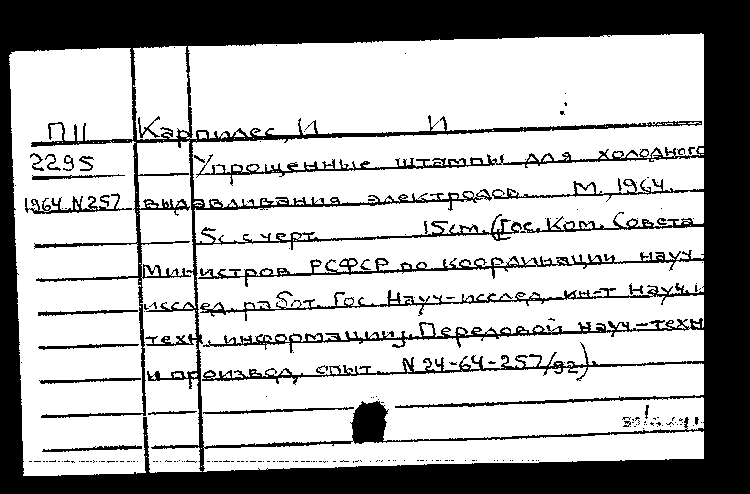 П11 Карпилес, И И
2295 Упрощенные штампы для холодного
1964 N257 выдавливания электродов. М., 1964.
5с. с черт. 15см. (Гос. Ком. Совета
Министров РСФСР по координации науч-
исслед. работ. Гос. Науч-исслед. ин-т науч. и
техн. информации). Передовой науч-техн
и производ. опыт. N 24-64-257/92).